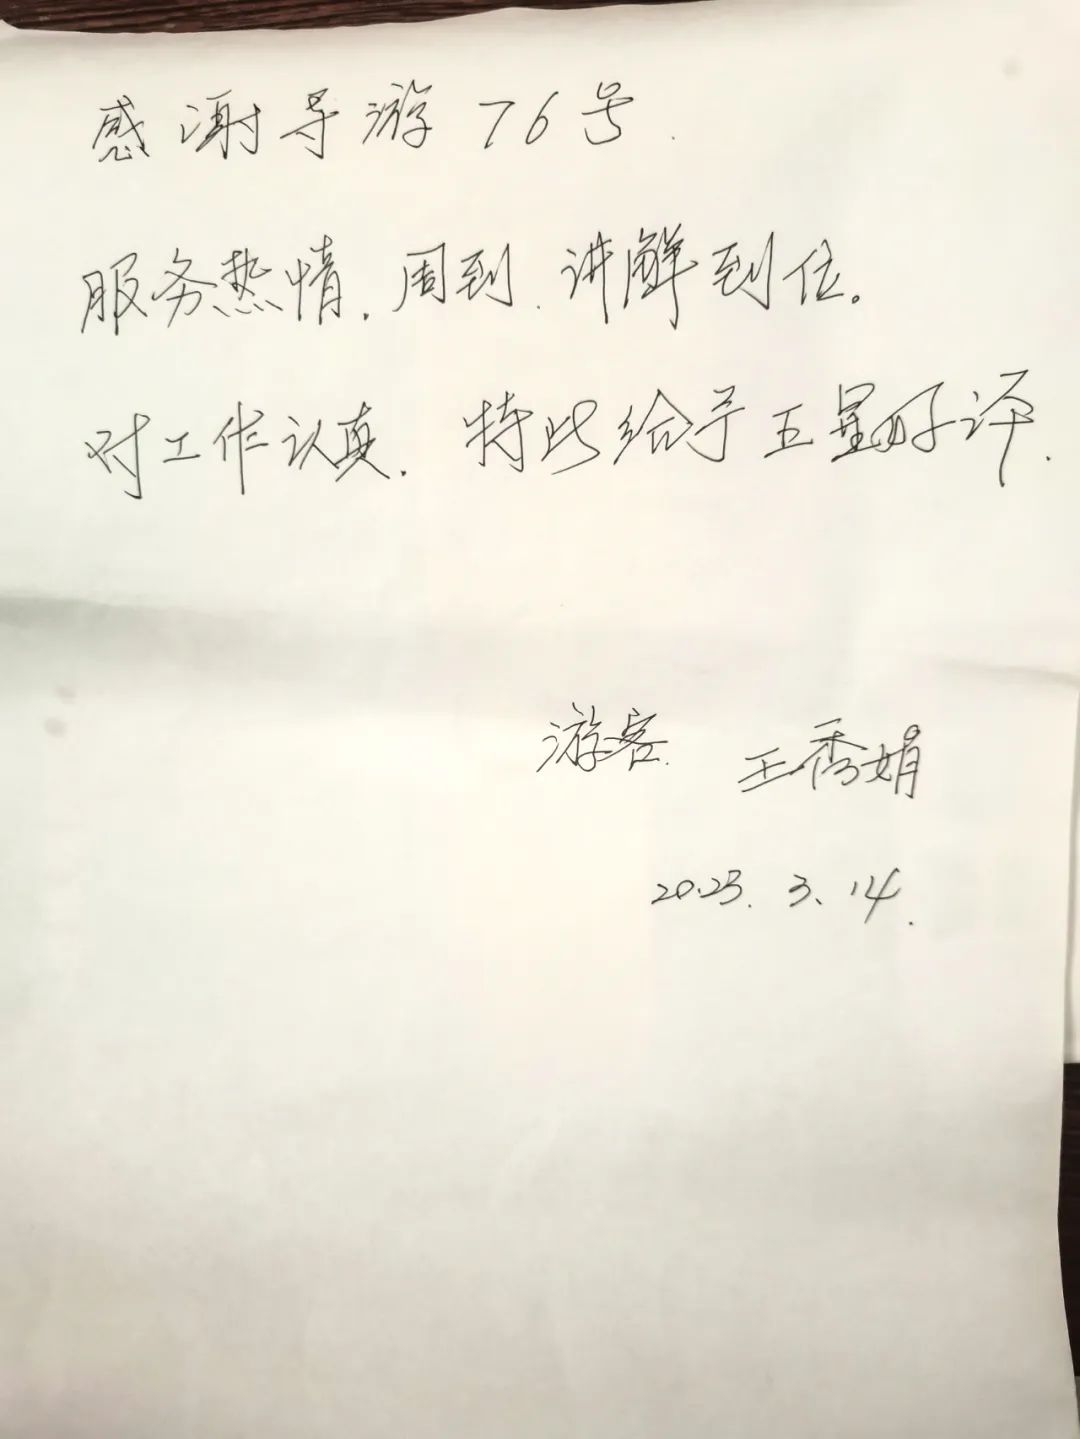 感谢导游76号.
服务热情.周到.讲解到位。
对工作认真.特此给予五星好评.
游客.王秀娟
2023.3、14.